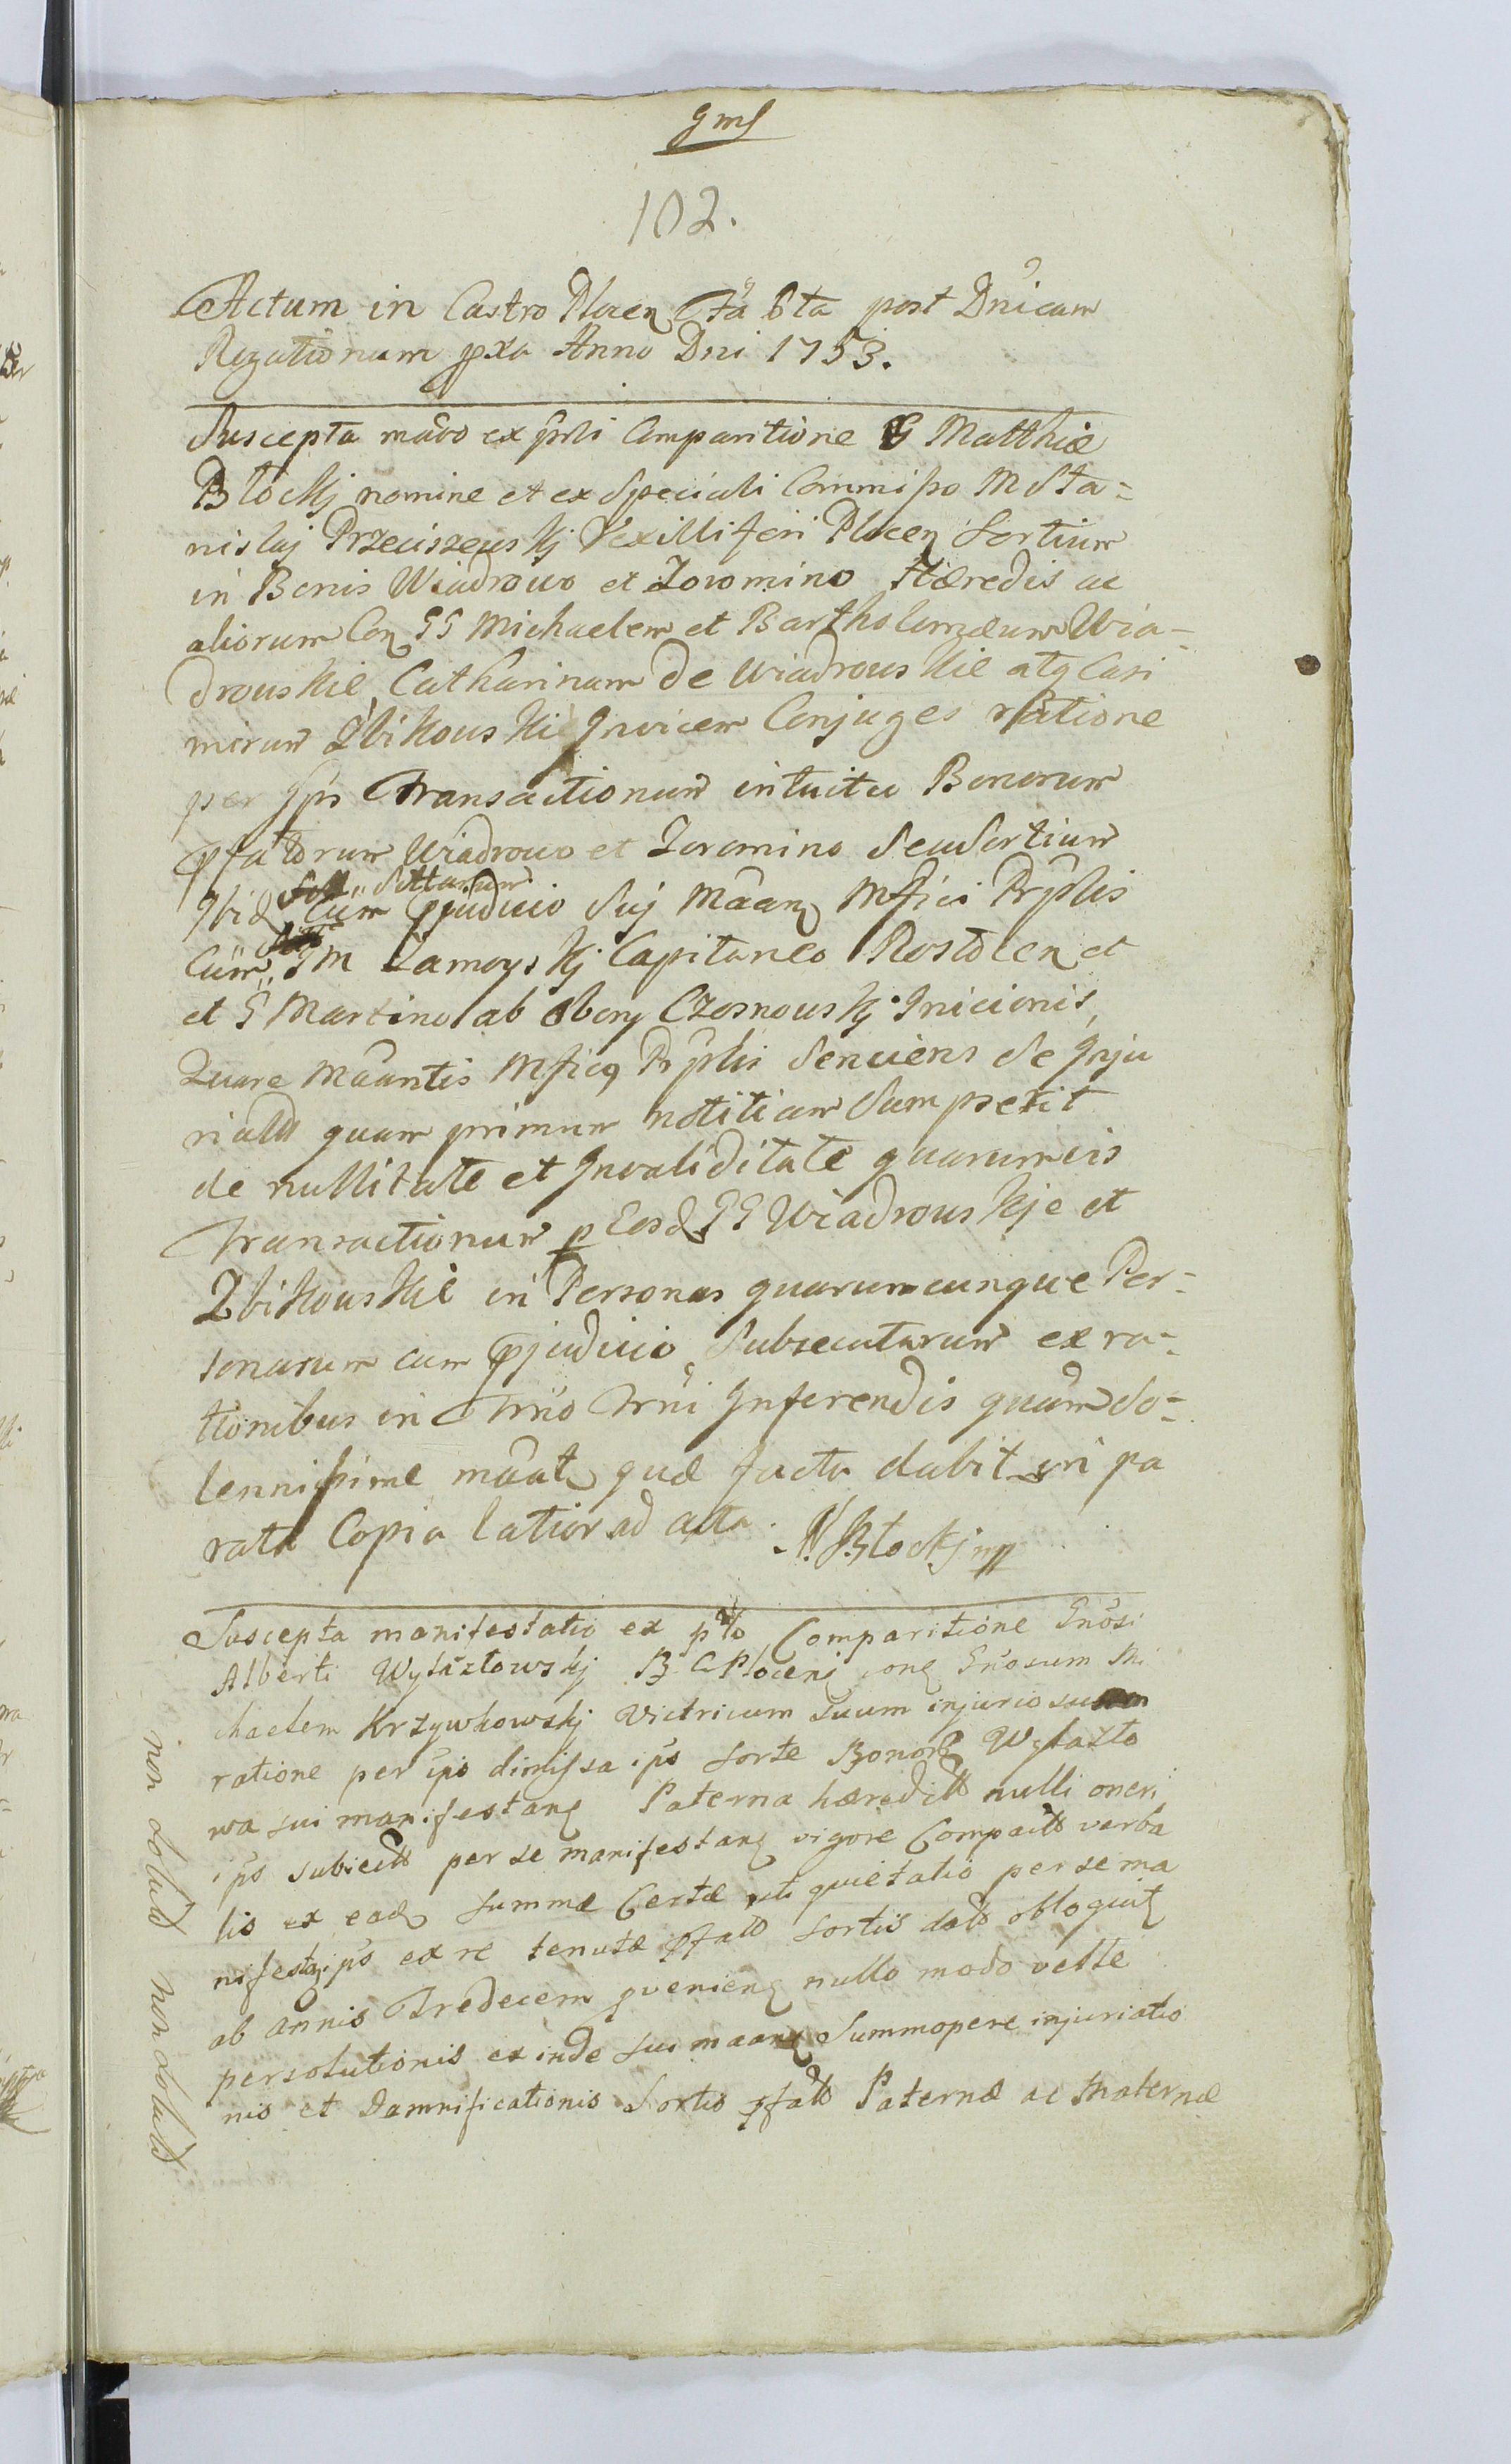 102.
Actum in Castro Plocen Fã 6ta post Dnicam
Rogationum pxa Anno Dni 1753.
Suscepta mãõ ex pñli Comparitione G Matthiæ
Błockj nomine et ex Speciali Commisso M Sta-
nislaj Przeciszewskj Vexilliferi Plocen Sortium
in Bonis Wiadrowo et Zoromino Hæredis ac
aliorum Con GG Michaelem et Bartholomæum Wia-
drowskie Catharinam de Wiadrowskie atq Casi
mirum Zbikowskie Invicem Conjuges ratione
per Ips Transactionum intuitu Bonorum
pfatorum Wiadrowo et Zoromino Seu Sortium
Ibid Cum pjudicio Suj Mãan Mfici Prplis
Cum M Zamoyskj Capitaneo Rostocen et
et G Martino ab Obory Czosnowskj Inicionis,
Quare Mãantis Mficq Prplis Serviens de Inju
riatu quam primum notitiam Sumpserit
de nullitate et Invaliditate quarumvis
Transactionum p Eosd GG Wiadrowskje et
Zbikowskie in Personas quarumcunque Per-
sonarum cum pjudicio Subsecutarum ex ra-
tionibus in Trno Trni Inferendis quam So-
lennissime mãat quæ facta dabit in pa
rata Copia latior ad acta. M Błockj mp
Suscepta manifestatio ex Comparitione Gnosi
Alberti Wylazłowskj B. C. Plocen con Gnosum Mi
chaelem Krzywkowskj Victricum suum injuriosum
ratione per ips dimissa ips sorte Bonor Wylazło
wa sui manifestan Paterna hæredit nulli oneri
ips subiect per se manifestan vigore Compact verba
lis ex ead summæ Certæ uti quietatio per se ma
nifestan ips ex re tenutæ pfat sortis dat obloquit
ab annis Tredecem pvenien nullo modo velle
persolutionis exinde sui maan Summopere injuriatio
nis et Damnificationis Sortis pfat Paternæ ac Maternæ
non solutt non solutt